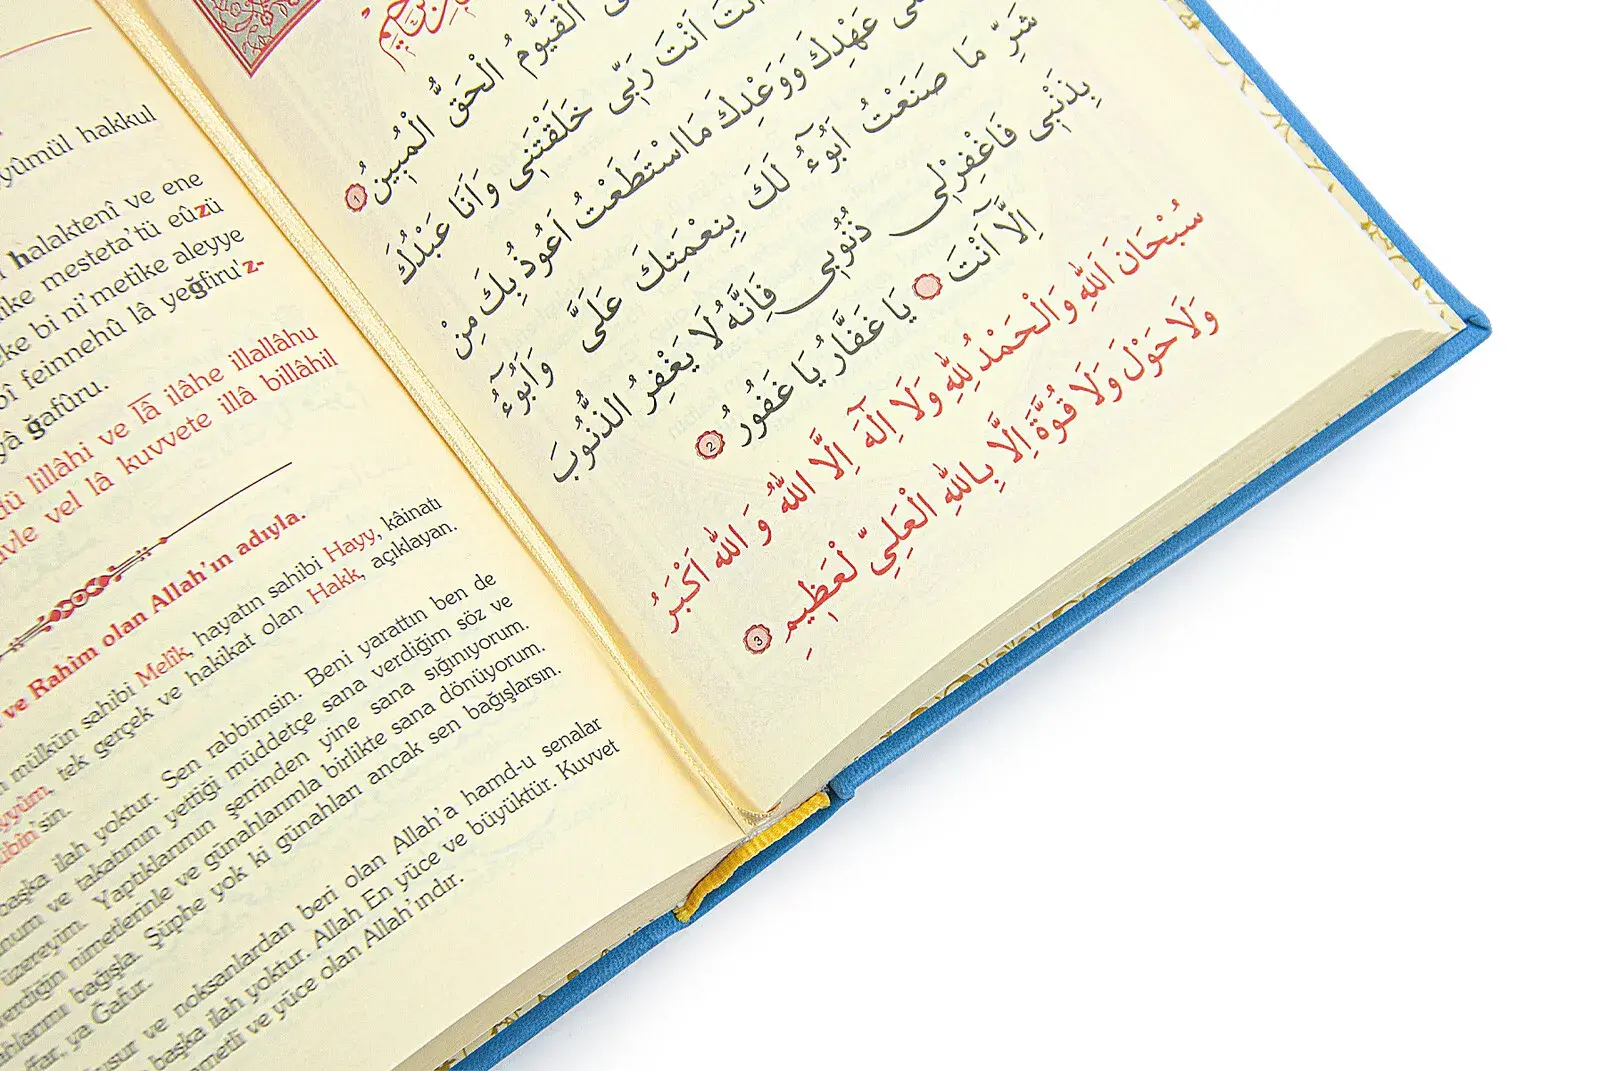 yûmül hakkul
halaktenî ve ene
ike mesteta'tü eûzü
eke bi ni'metike aleyye
bî feinnehû lâ yeğfiru'z-
yâ ğafûru.
dü lillâhi ve lâ ilâhe illallâhu
vle vel lâ kuvvete illâ billâhil
ve Rahîm olan Allah'ın adıyla.
mülkün sahibi Melîk, hayatın sahibi Hayy, kâinatı
yyûm, tek gerçek ve hakikat olan Hakk, açıklayan.
übîn'sin.
başka ilah yoktur. Sen rabbimsin. Beni yarattın ben de
num ve takatımın yettiği müddetçe sana verdiğim söz ve
üzereyim. Yaptıklarımın şerrinden yine sana sığınıyorum.
verdiğin nimetlerinle ve günahlarımla birlikte sana dönüyorum.
ahlarımı bağışla. Şüphe yok ki günahları ancak sen bağışlarsın.
ffar, ya Ğafur.
usur ve noksanlardan beri olan Allah'a hamd-u senalar
başka ilah yoktur. Allah En yüce ve büyüktür. Kuvvet
metli ve yüce olan Allah'ındır.
الْقَيُّومُ الْحَقُّ الْمُبِينُ ١
اَنْتَ اَنْتَ رَبِّى خَلَقْتَنِى وَاَنَا عَبْدُكَ
عَهْدِكَ وَوَعْدِكَ مَا اسْتَطَعْتُ اَعُوذُ بِكَ مِنْ
شَرِّ مَا صَنَعْتُ اَبُٓوءُ لَكَ بِنِعْمَتِكَ عَلَىَّ وَاَبُٓوءُ
بِذَنْبِى فَاغْفِرْلِى ذُنُوبِى فَاِنَّهُ لَا يَغْفِرُ الذُّنُوبَ
اِلَّٓا اَنْتَ يَا غَفَّارُ يَا غَفُورُ 2
سُبْحَانَ اَللّٰهِ وَالْحَمْدُ لِلّٰهِ وَلَٓا اِلٰهَ اِلَّا اللّٰهُ وَ اللّٰهُ اَكْبَرُ
وَلَا حَوْلَ وَلَا قُوَّةَ اِلَّا بِاللّٰهِ الْعَلِىِّ لْعَظِيمِ 3